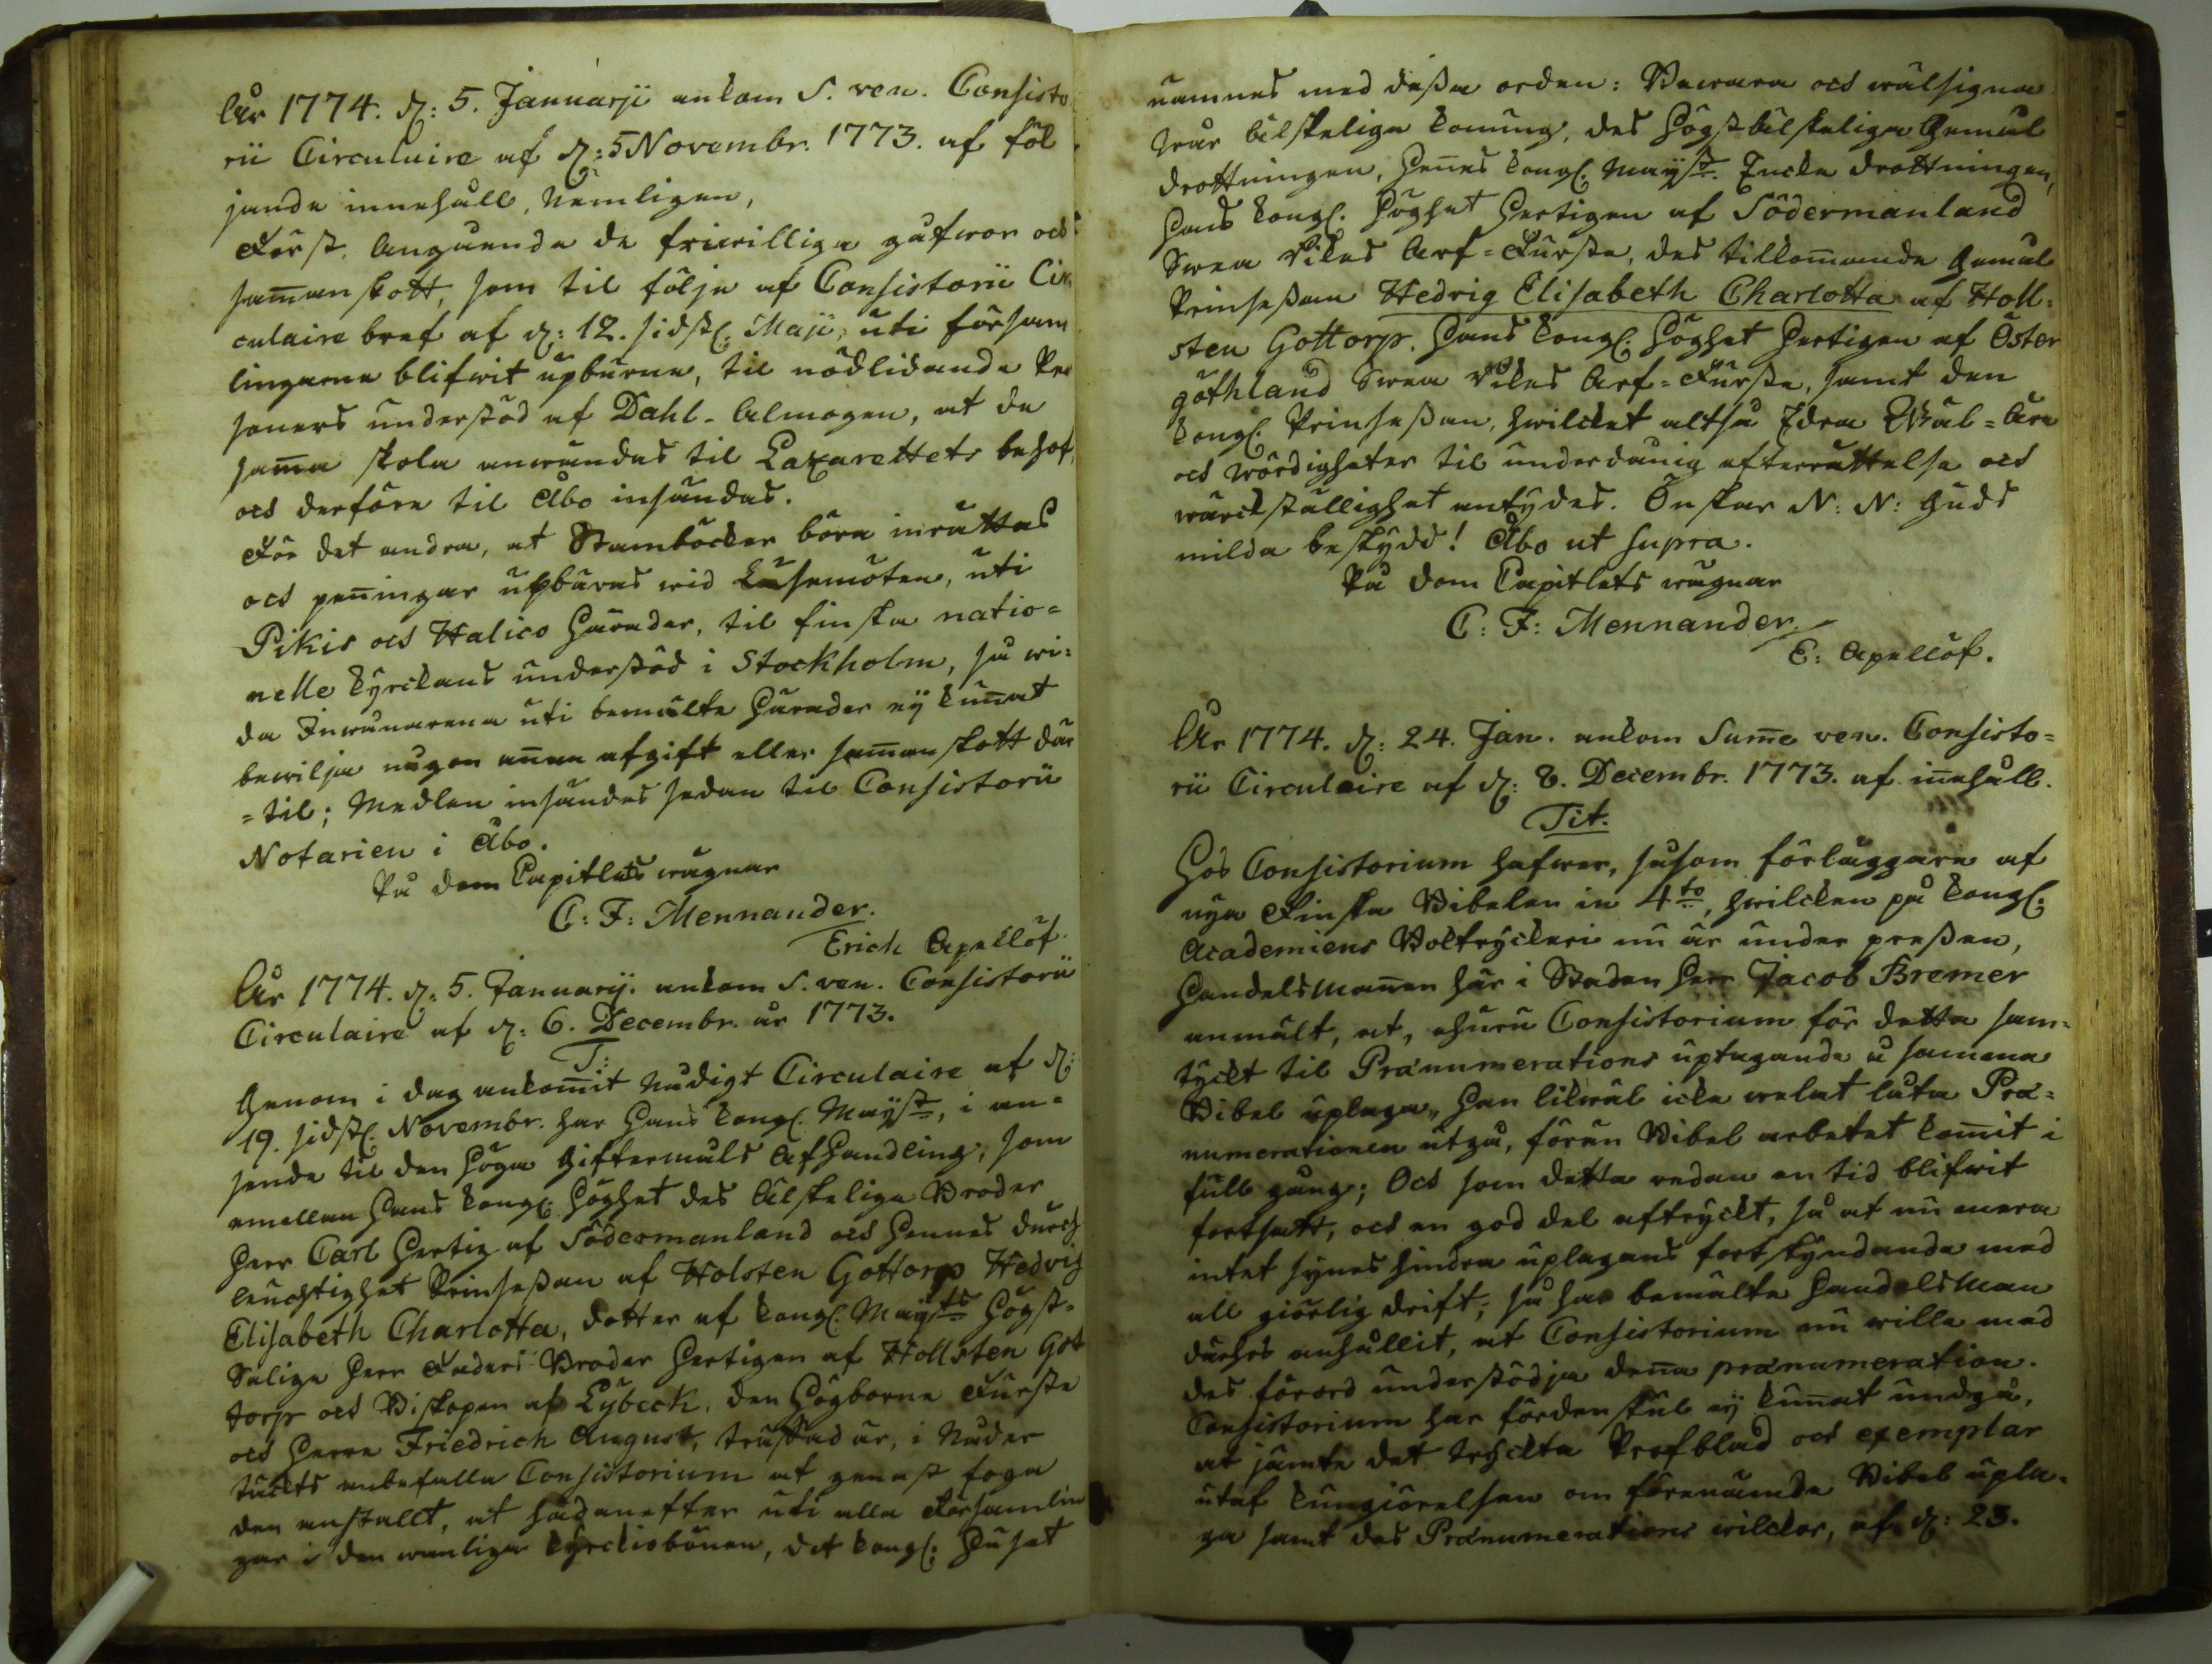 År 1774. d: 5. Januarji ankom S. ven. Consisto
rii Circulaire af d: 5 Novembr. 1773. af föl
jande innehåll, Nemligen,
Först. Angående de friwilliga gåfwor och
samanskott, som til följe af Consistorii Cir
culaire bref af d: 12. sidstl. Maji, uti försam
lingarna blifwit upburne, til nödlidande Per
soners understöd af Dahl-Almogen, at de
sama skola anwändas til Lazarettets behof,
och derföre til Åbo insändas.
För det andra, at Stamböcker böra inrättas
och peningar upbäras wid Läsemöten, uti
Pikis och Halico Härader, til finska natio=
nelle kyrckans understöd i Stockholm, så wi=
da Inwånarena uti bemälte Härader ej kunat
bewilja någon anan afgift eller samanskott där
=til; Medlen insändes sedan til Consistorii
Notarien i Åbo.
På Dom Capitlets wägnar
C: F: Mennander.
Erich Apellöf.
År 1774. d: 5. Januarij. ankom S. ven. Consistorii
Circulaire af d: 6. Decembr. år 1773.
T:
Genom i dag ankomit Nådigt Circulaire af d:
19. sidstl. Novembr. har Hans kongl. Mayst, i an=
seende til den höga Giftermåls Afhandling, som
emellan Hans kongl. Höghet des Älskelige Broder
Herr Carl Hertig af Södermanland och Hennes Durch
leuchtighet Prinseßan af Holsten Gottorp Hedvig
Elisabeth Charlotta, dotter af kongl. Maysts Högst=
Salige Herr Faders Broder Hertigen af Hollsten Got
torp och Biskopen af Lybeck, den Högborne Furste
och Herre Friedrich August, träffad är, i Nåder
täckts anbefalla Consistorium at genast foga
den anstallt, at hädanefter uti alla Församlin
gar i den wanliga kyrckiobönen, det kongl. Huset
namnes med deßa orden: Bewara och wälsigna
wår älskelige konung, des Högstälskeliga Gemål
drottningen, Henes kongl. Mayst. Encke drottningen,
Hans kongl. Höghet Hertigen af Södermanland
Swea Rikes Arf=Furste, des tillkomande Gemål
Prinseßan Hedvig Elisabeth Charlotta af Holl=
sten Gottorp. Hans kongl. Höghet Hertigen af Öster
göthland Swea Rikes Arf=Furste, samt den
kongl. Prinseßan, hwilcket altså Edra Wäl=Äre
och wördigheter til underdånig efterrättelse och
wärckställighet antydes. Önskar N: N: Guds
milda beskydd! Åbo ut supra.
På Dom Capitlets wägnar
C: F: Mennander.
E: Apellöf.
År 1774. d: 24. Jan. ankom Sume ven. Consisto=
rii Circulaire af d: 8. Decembr. 1773. af inehåll.
Tit.
Hos Consistorium hafwer, såsom förläggare af
nya Finska Bibelen in 4to, hwilcken på kongl.
Academiens Boktryckeri nu är under preßen,
Handelsmanen här i Staden Herr Jacob Bremer
anmält, at, ehuru Consistorium för detta sam=
tyckt til Pränumerations uptagande å samma
Bibel uplaga, han likwäl icke welat låta Præ=
numerationen utgå, förän Bibel arbetet komit i
full gång; Och som detta redan en tid blifwit
fortsatt, och en god del aftryckt, så at nu mera
intet synes hindra uplagans fortskyndande med
all giörlig drift; så har bemälte Handelsman
därhos anhållit, at Consistorium nu wille med
des förord understödja dena prænumeration.
Consistorium har fördenskul ej kunat undgå,
at jämte det tryckta Profblad och exemplar
utaf kungiörelsen om förenämde Bibel upla=
ga samt des Prænumerations wilckor, af d: 23.